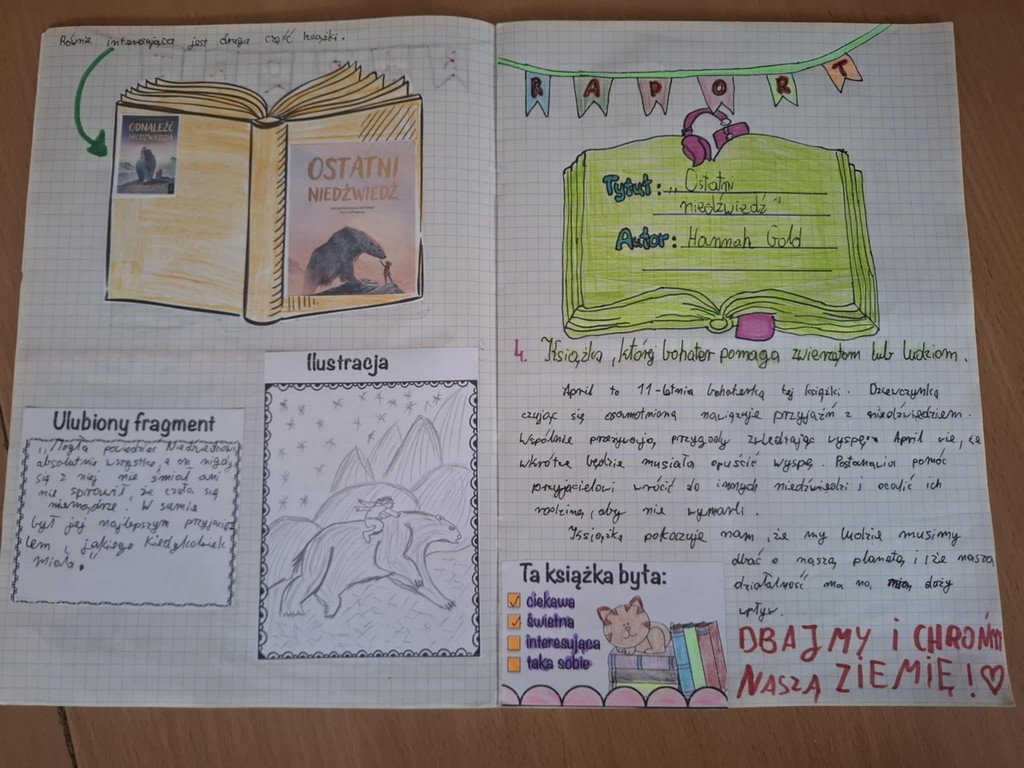 Równie interesująca jest druga część książki.
ODNALEŹĆ
NIEDŹWIEDZIA
OSTATNI
NIEDŹWIEDŹ
Ilustracja
Ulubiony fragment
„Mogła powiedzieć Niedźwiedziowi
absolutnie wszystko, a on nigdy
się z niej nie śmiał ani
nie sprawił, że czuła się
niemądrze. W sumie
był jej najlepszym przyjacie
lem, jakiego kiedykolwiek
miała."
RAPORT
Tytuł: „Ostatni
niedźwiedź"
Autor: Hannah Gold
4. Książka, której bohater pomaga zwierzętom lub ludziom.
April to 11-letnia bohaterka tej książki. Dziewczynka
czując się osamotniona nawiązuje przyjaźń z niedźwiedziem.
Wspólnie przeżywają przygody zwiedzając wyspę. April wie, że
wkrótce będzie musiała opuścić wyspę. Postanawia pomóc
przyjacielowi wrócić do innych niedźwiedzi i ocalić ich
rodzinę, aby nie wymarli.
Książka pokazuje nam, że my ludzie musimy
dbać o naszą planetę, i że nasza
działalność ma na nią duży
wpływ.
Ta książka była:
ciekawa
świetna
interesująca
taka sobie
DBAJMY I CHROŃMY
NASZĄ ZIEMIĘ!